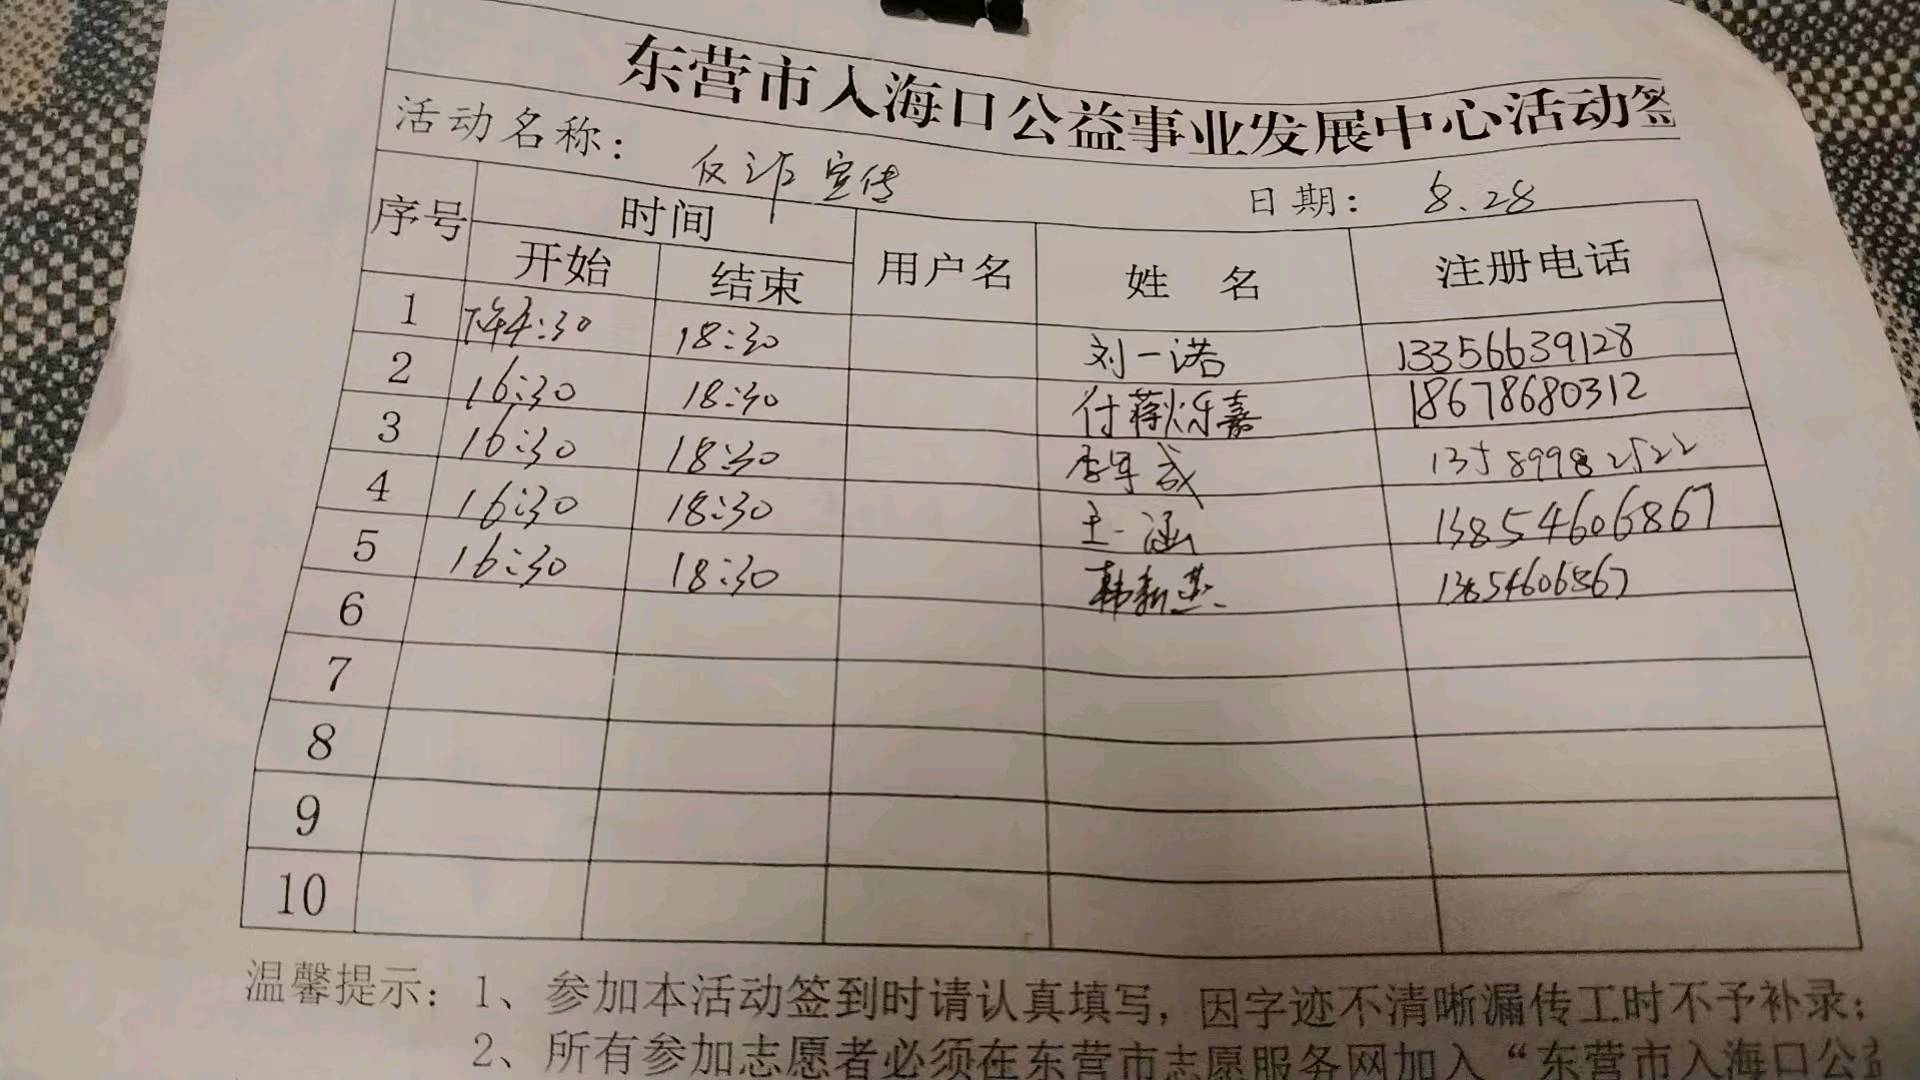 东营市入海口公益事业发展中心活动签
活动名称: 反诈宣传 日期: 8.28
序号 时间 用户名 姓 名 注册电话
开始 结束
1 下午4:30 18:30 刘一诺 13356639128
2 16:30 18:30 付蒋烁嘉 18678680312
3 16:30 18:30 13589982522
4 16:30 18:30 王一涵 13854606867
5 16:30 18:30 韩新燕 13854606867
6
7
8
9
10
温馨提示: 1、参加本活动签到时请认真填写,因字迹不清晰漏传工时不予补录;
2、所有参加志愿者必须在东营市志愿服务网加入“东营市入海口公益